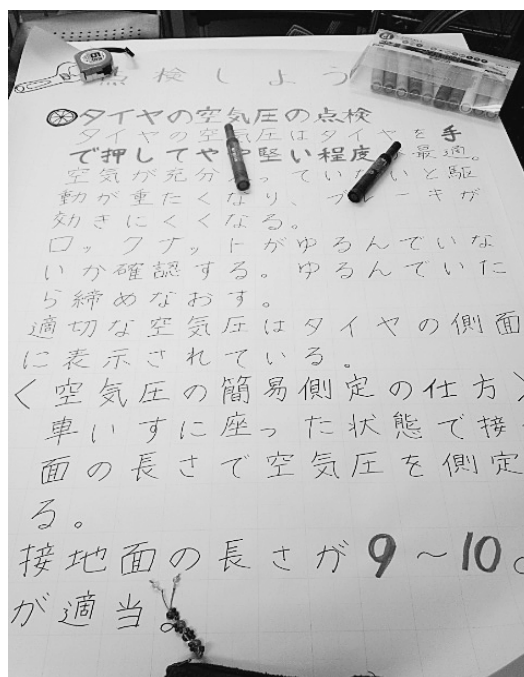 点検しよう
タイヤの空気圧の点検
タイヤの空気圧はタイヤを手
で押してやや堅い程度 最適。
空気が充分 っていないと駆
動が重たくなり、ブレーキが
効きにくくなる。
ロックナットがゆるんでいな
いか確認する。ゆるんでいた
ら締めなおす。
適切な空気圧はタイヤの側面
に表示されている。
〈空気圧の簡易側定の仕方〉
車いすに座った状態で接
面の長さで空気圧を側定
る。
接地面の長さが9〜10
が適当。